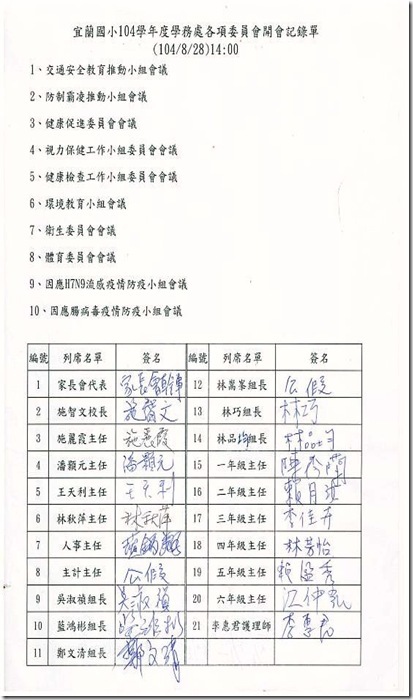 宜蘭國小104學年度學務處各項委員會開會記錄單
(104/8/28)14:00
1、交通安全教育推動小組會議
2、防制霸凌推動小組會議
3、健康促進委員會會議
4、視力保健工作小組委員會會議
5、健康檢查工作小組委員會會議
6、環境教育小組會議
7、衛生委員會會議
8、體育委員會會議
9、因應H7N9流感疫情防疫小組會議
10、因應腸病毒疫情防疫小組會議
編號 列席名單 簽名 編號 列席名單 簽名
1 家長會代表 12 林嵩峯組長 公假
2 施智文校長 施智文 13 林巧組長 林巧
3 施麗霞主任 施麗霞 14 林品均組長 林品均
4 潘顥元主任 潘顥元 15 一年級主任
5 王天利主任 王天利 16 二年級主任 賴月
6 林秋萍主任 林秋萍 17 三年級主任 李佳
7 人事主任 18 四年級主任 林芳怡
8 主計主任 公假 19 五年級主任
9 吳淑禎組長 吳淑禎 20 六年級主任 江仲
10 藍鴻彬組長 藍鴻彬 21 李惠君護理師 李惠君
11 鄭文清組長 鄭文清